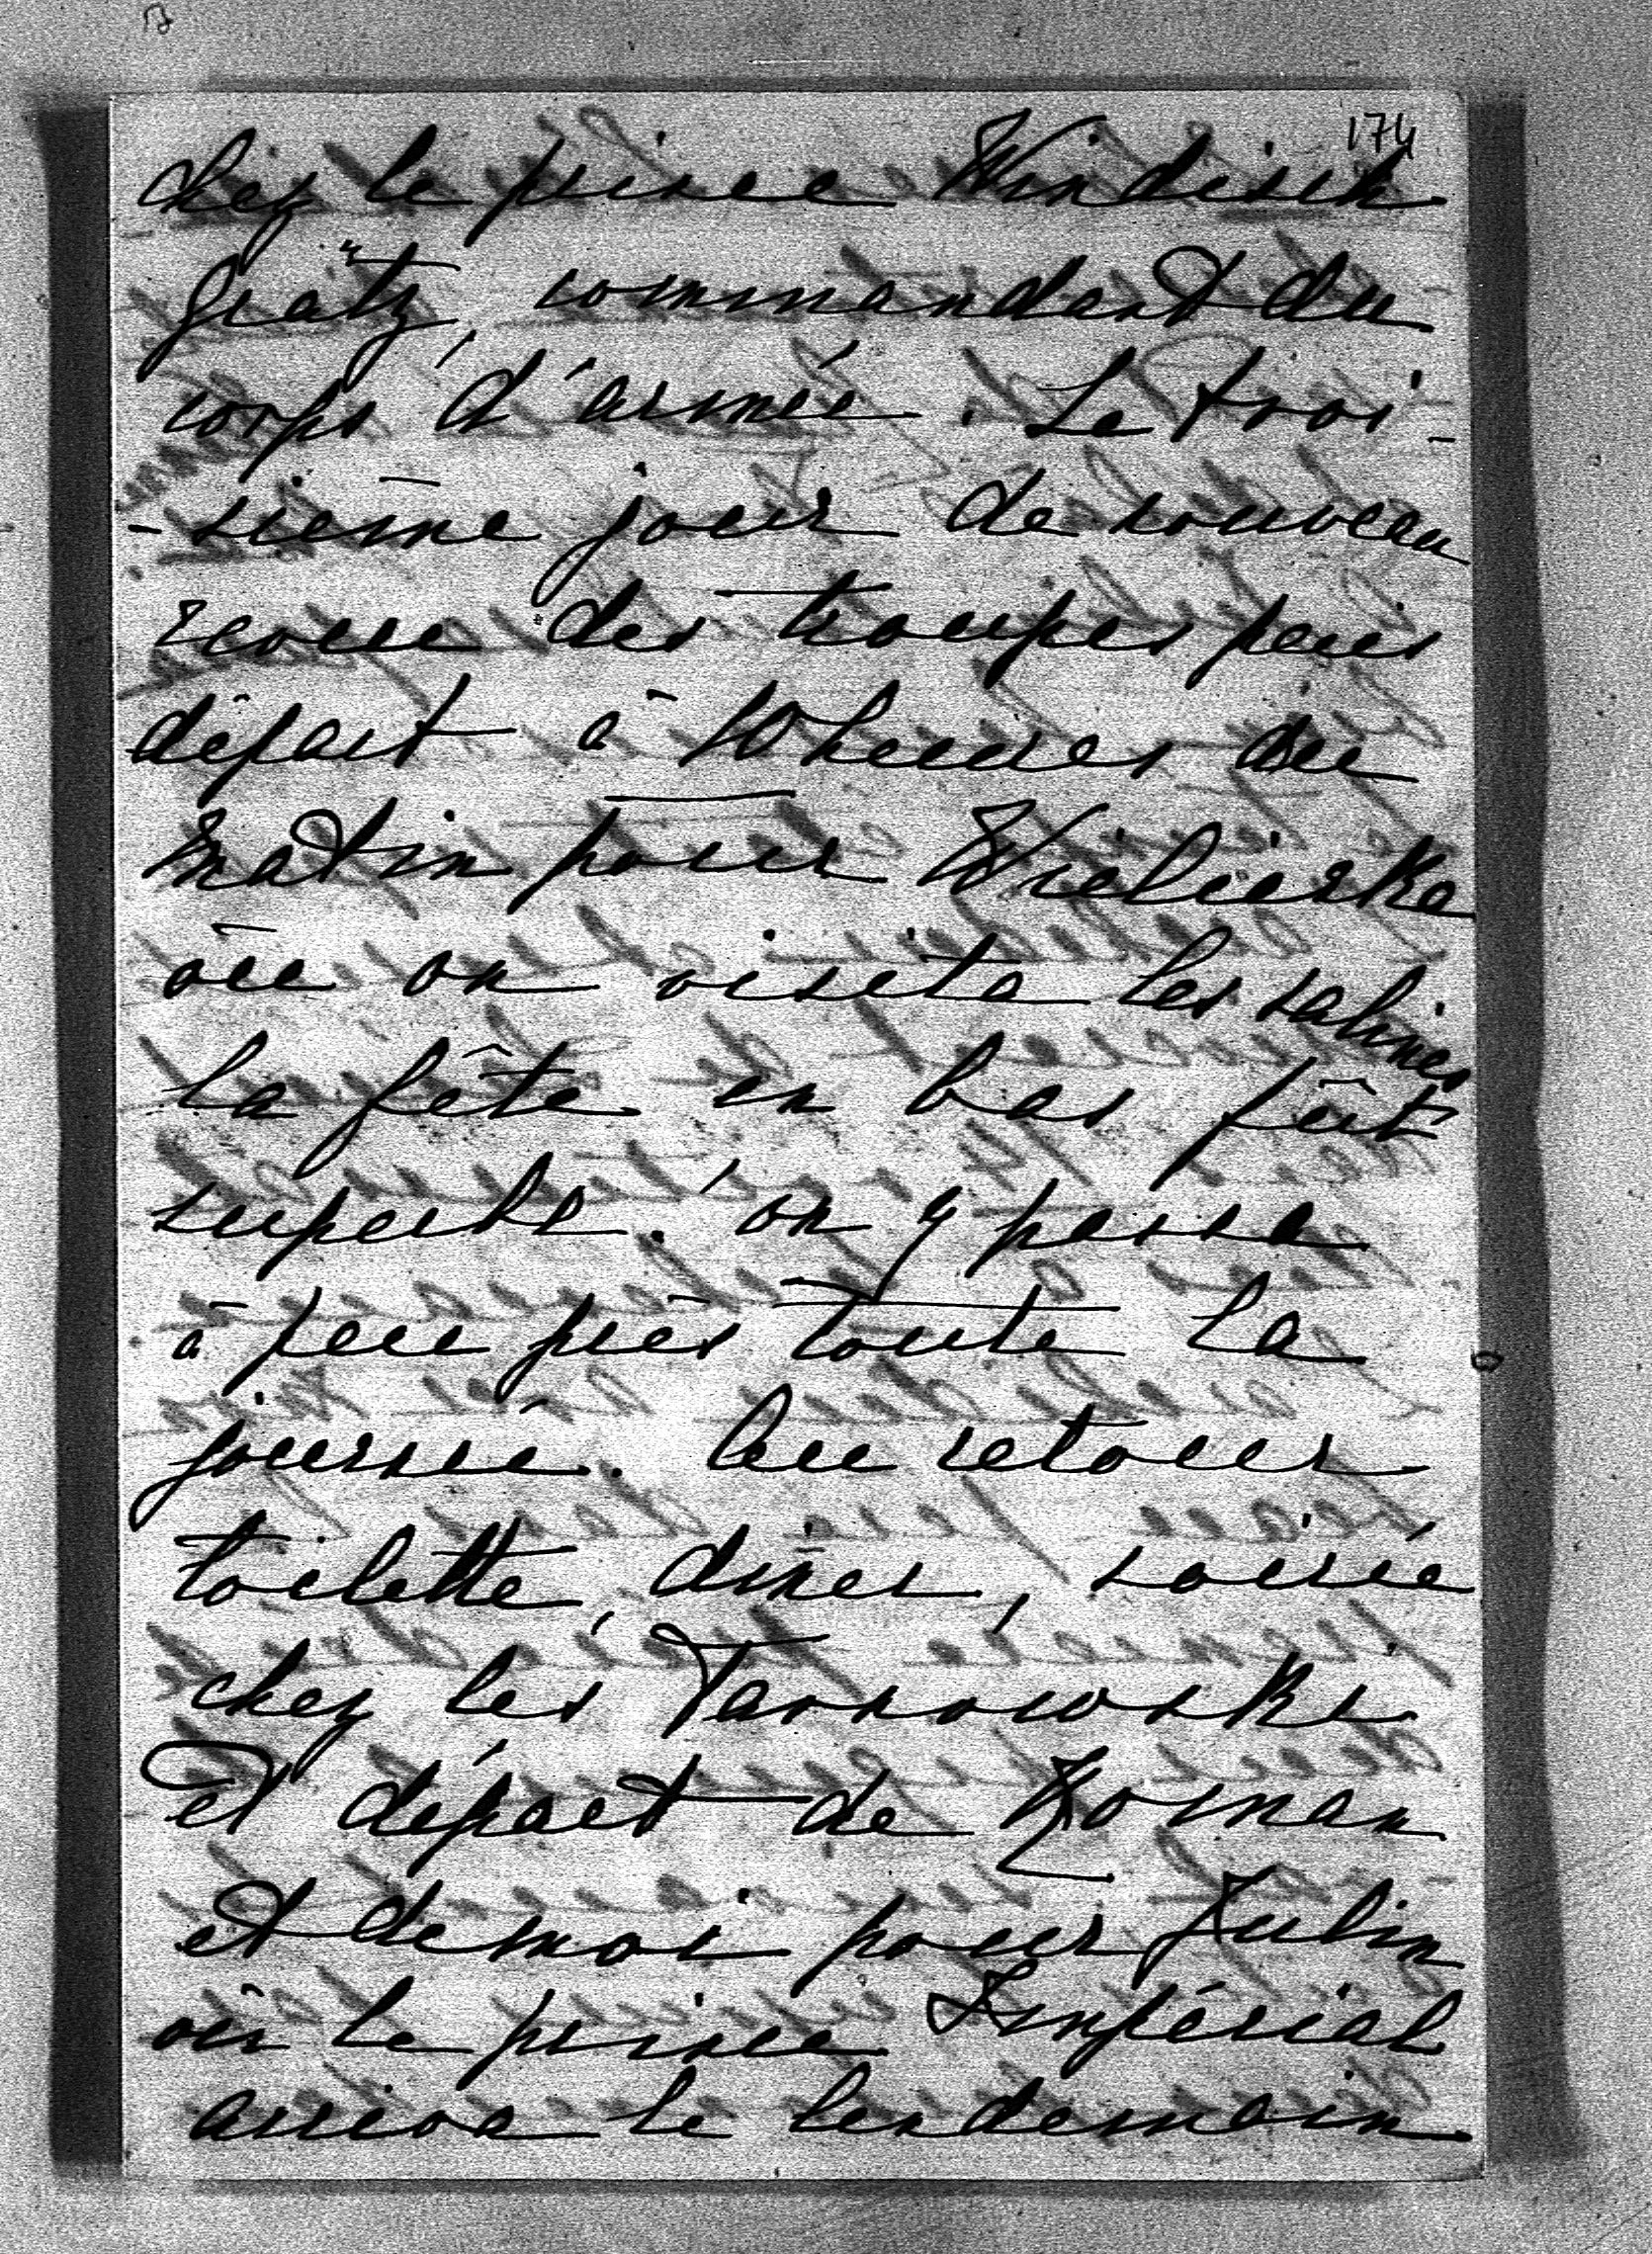 174
chez le prince Windisch
grätz, commandant du
corps d'armée. Le troi-
-sième jour de nouveau
revue des troupes puis
départ à 10 heures du
matin pour Wielicska
où on visita les salines
la fête en bas fût
superbe. on y passa
à peu près toute la
journée. Au retour
toilette, diner, soirée
chez les Tarnowski
et départ de Kozman
et de moi pour Lubin
où le prince Impérial
arriva le lendemain